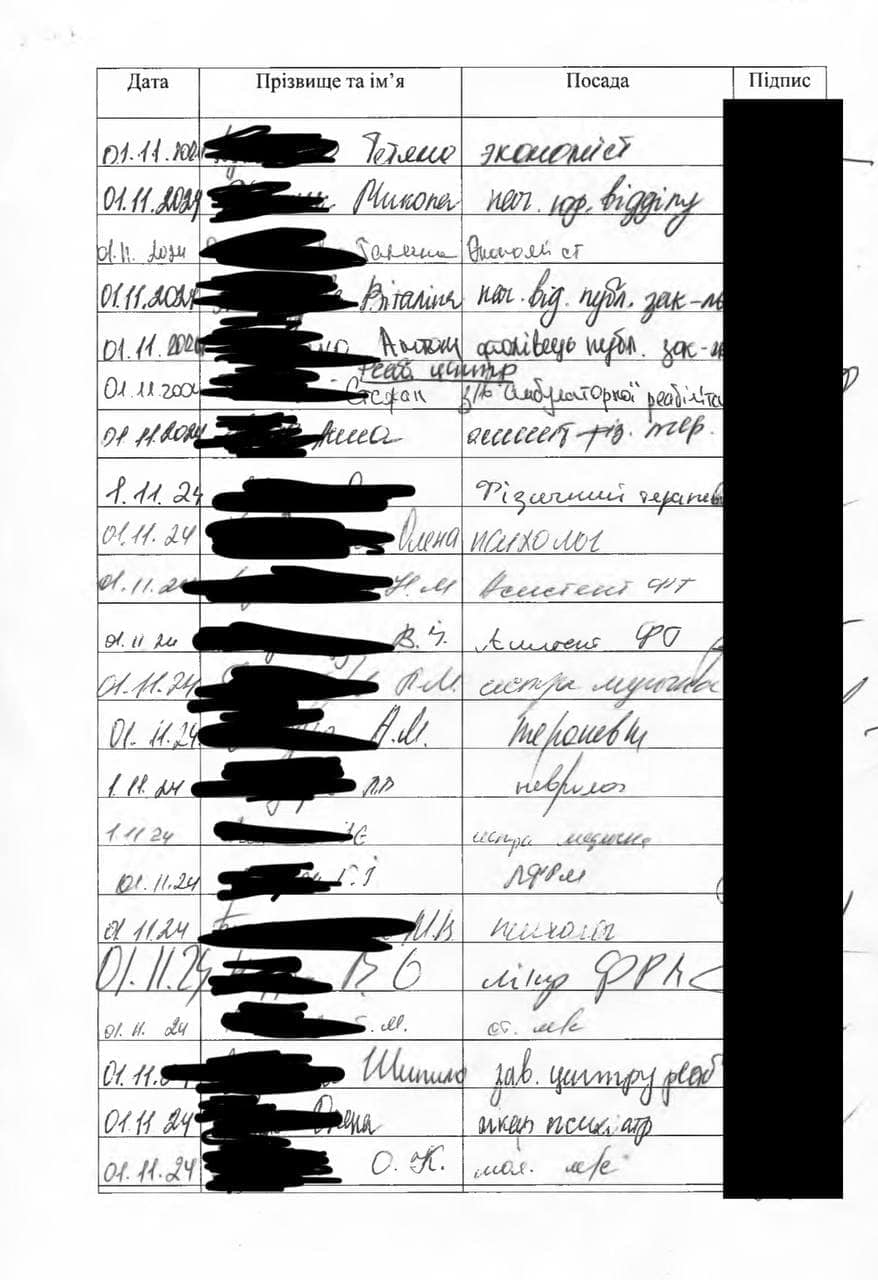 Дата Прізвище та ім’я Посада Підпис
01.11.2024 Тетяна економіст
01.11.2024 Микола нач. юр. відділу
01.11.2024 Економіст
01.11.2024 Віталіна нач. від. публ. зак-
01.11.202 Антон фахівець публ. зак-
Реаб центр
01.11.202 Стефан з/в амбулаторної реабіліта
01.11.2024 Анна асистент фіз. тер.
1.11.24 Фізичний терапевт
01.11.24 Олена психолог
01.11.24 Н.М Асистент ФТ
01.11.24 В. Асистент
01.11.24 П.М. сестра медична
01.11.24 А.М. терапевт
1.11.24 невролог
1.11.24 сестра медична
01.11.24 Г.І ЛФРМ
01.11.24 М.В. психолог
01.11.24 В О лікар ФРМ
01.11.24 М. ст. м/с
01.11. зав. центру реаб
01.11.24 Олена лікар психіатр
01.11.24 О. К. мол. м/с